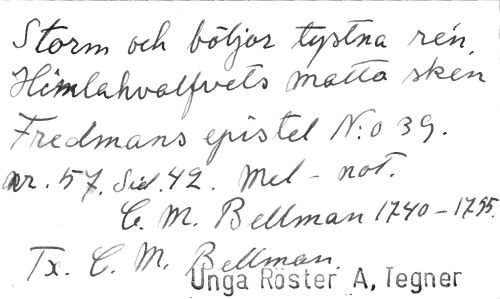 Storm och böljor tystna re'n,
Himlahvalfvets matta sken
Fredmans epistel N:o 39.
nr. 57. Sid. 42. Mel - not.
C. M. Bellman 1740-1795.
Tx. C. M. Bellman.
Unga Röster A, Tegner